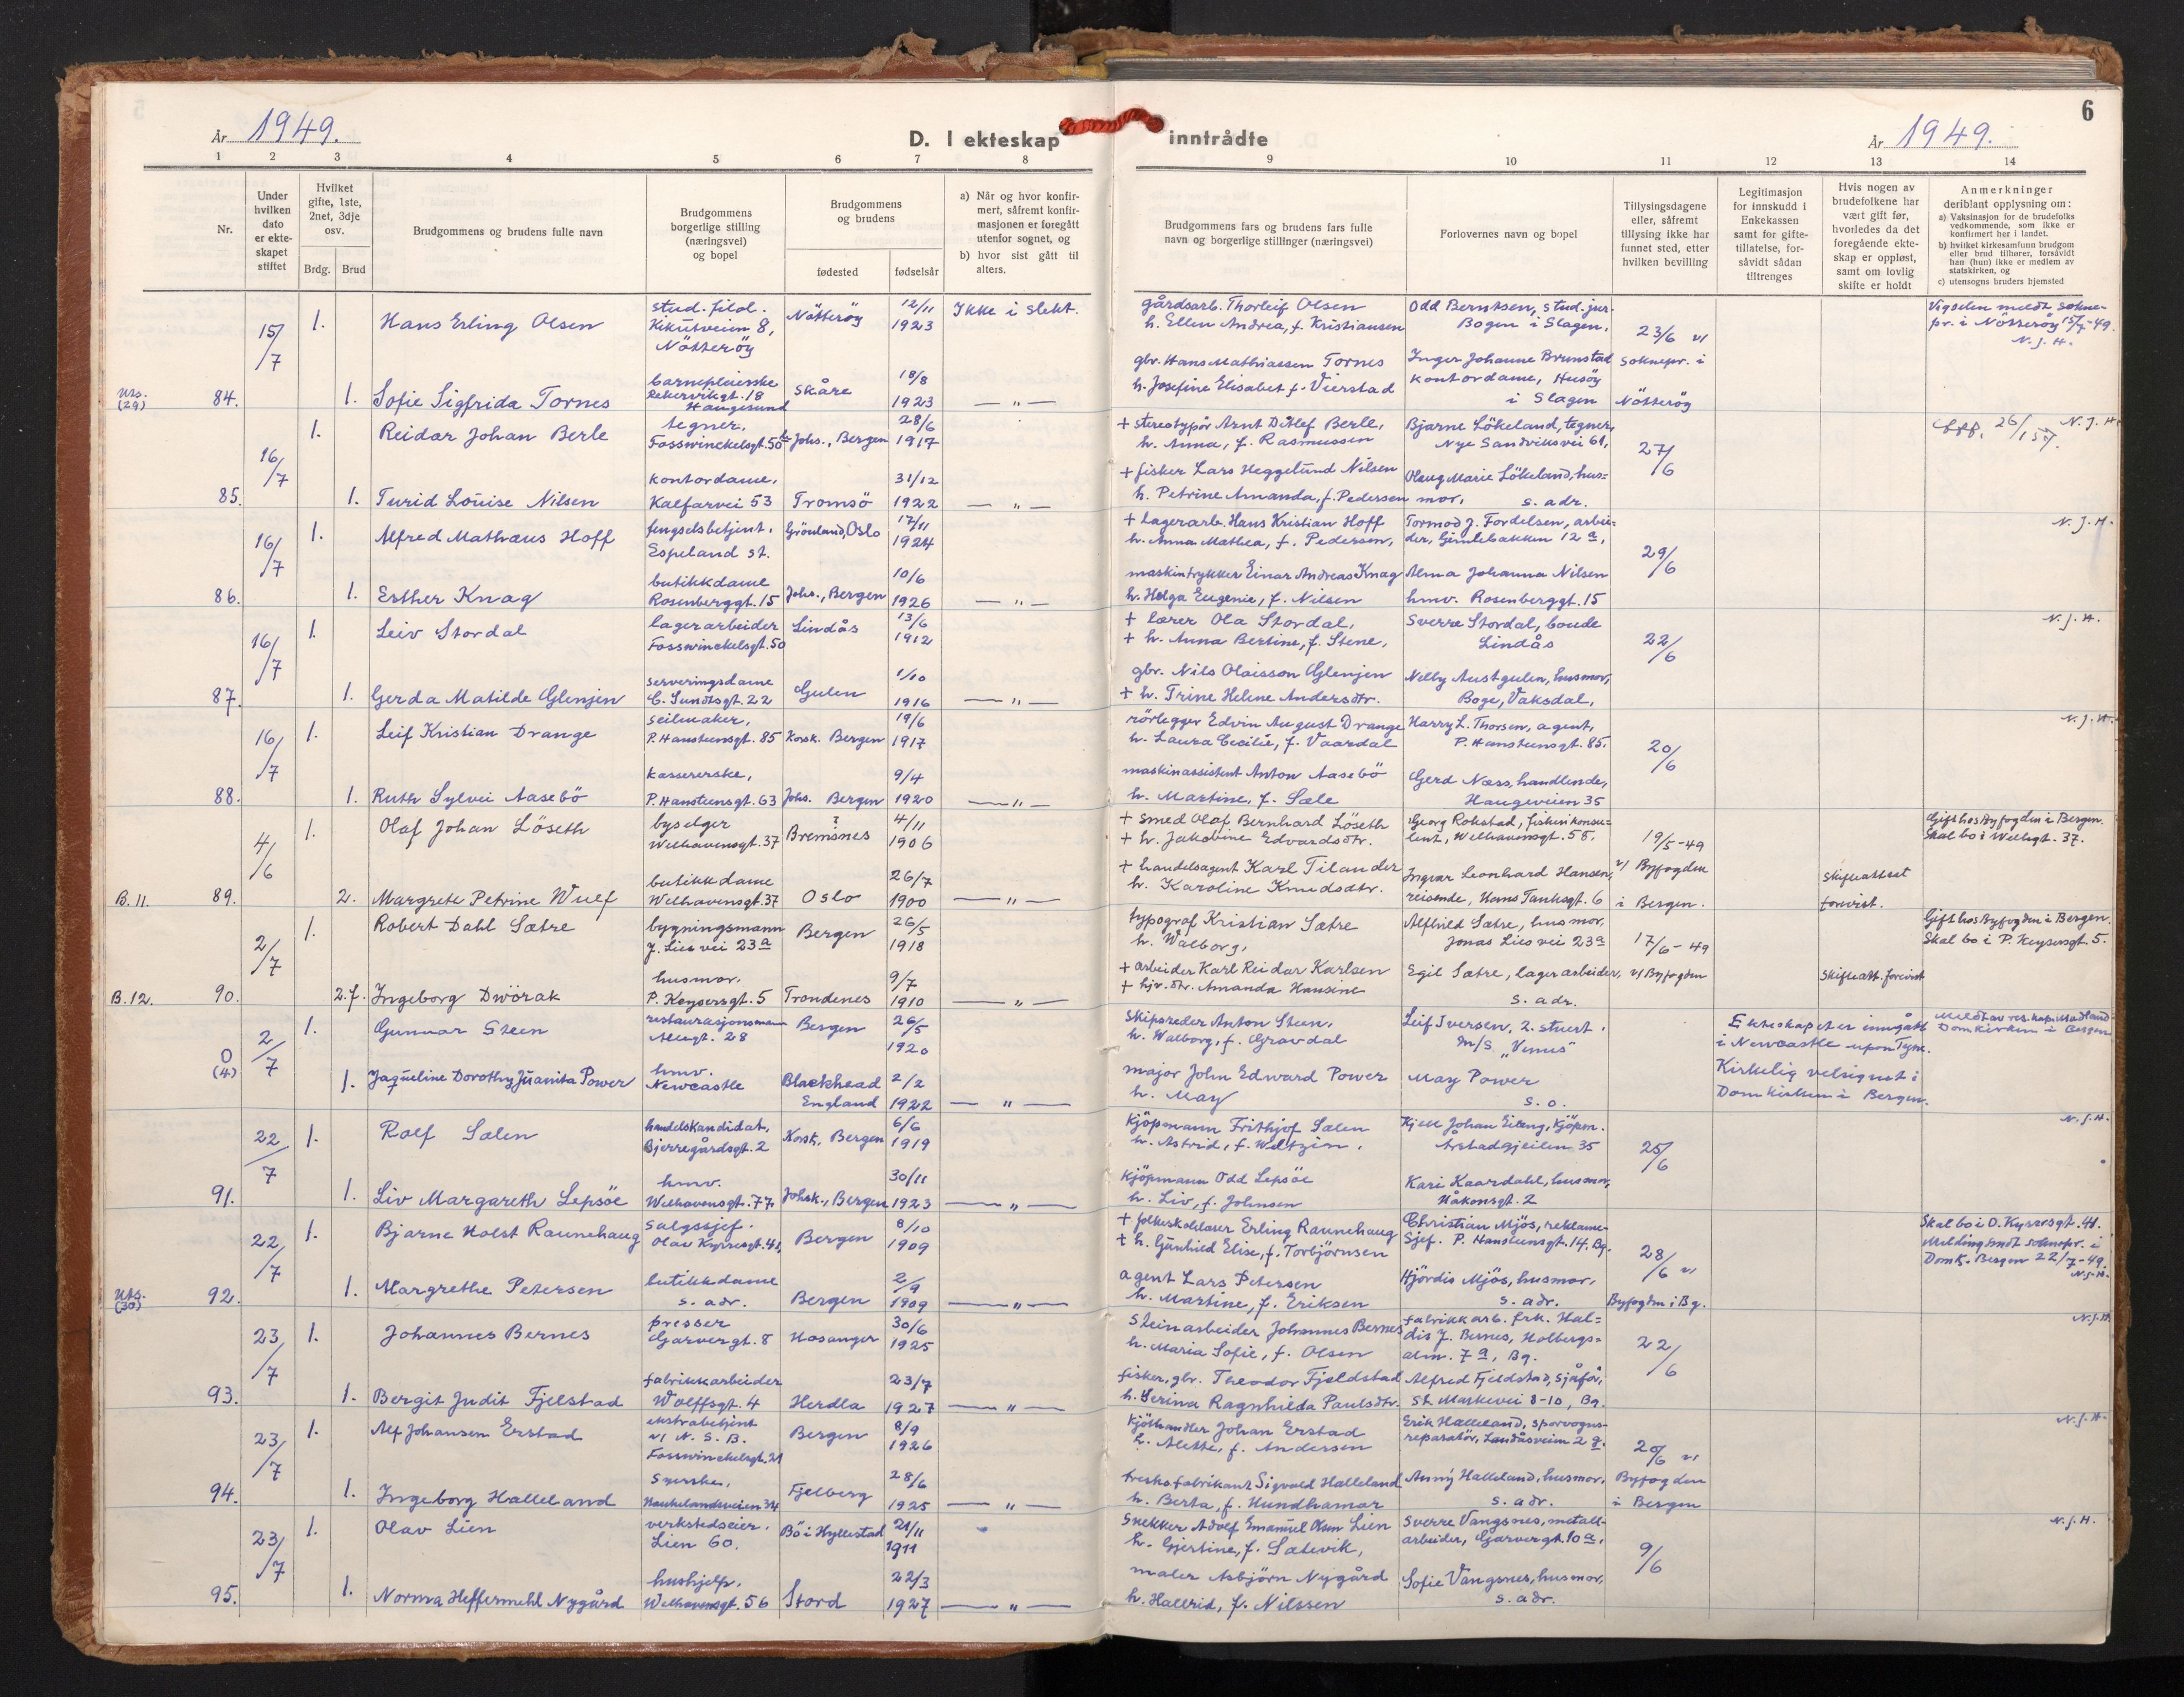 6
År 1949.
D. I ekteskap inntrådte
År 1949.
1 2 3 4 5 6 7 8 9 10 11 12 13 14
Nr.
Under hvilken dato er ekte- skapet stiftet
Hvilket gifte, 1ste, 2net, 3dje osv.
Brdg. Brud
Brudgommens og brudens fulle navn
Brudgommens borgerlige stilling (næringsvei) og bopel
Brudgommens og brudens
fødested fødselsår
a) Når og hvor konfir- mert, såfremt konfir- masjonen er foregått utenfor sognet, og
b) hvor sist gått til alters.
Brudgommens fars og brudens fars fulle navn og borgerlige stillinger (næringsvei)
Forlovernes navn og bopel
Tillysingsdagene eller, såfremt tillysing ikke har funnet sted, etter hvilken bevilling
Legitimasjon for innskudd i Enkekassen samt for gifte- tillatelse, for- såvidt sådan tiltrenges
Hvis nogen av brudefolkene har vært gift før, hvorledes da det foregående ekte- skap er oppløst, samt om lovlig skifte er holdt
Anmerkninger deriblant opplysning om:
a) Vaksinasjon for de brudefolks vedkommende, som ikke er konfirmert her i landet.
b) hvilket kirkesamfunn brudgom eller brud tilhører, forsåvidt han (hun) ikke er medlem av statskirken, og
c) utensogns bruders hjemsted
15/7 1. Hans Erling Olsen stud. filol. Kikutveien 8, Nötteröy Nötteröy 12/11 1923 Ikke i slekt. gårdsarb. Thorleif Olsen h. Ellen Andrea, f. Kristiansen Odd Berntsen, stud. jur. Bogen i Slagen. 23/6 v/ Vigselen meldt sokne- pr. i Nötteröy 15/7-49. N.J.H.
Uts. (29) 84. 1. Sofie Sigfrida Tornes barnepleierske Rekervikgt. 18 Haugesund Skåre 18/8 1923 — " — gbr. Hans Mathiassen Tornes h. Josefine Elisabet f. Vierstad Inger Johanne Brunstad kontordame, Husöy i Slagen soknepr. i Nötteröy
16/7 1. Reidar Johan Berle tegner, Fosswinckelsgt. 50 Johs., Bergen 28/6 1917 + stereotypör Arnt Ditlef Berle, h. Anna, f. Rasmussen Bjarne Lökeland, tegner, Nye Sandviksvei 61, 27/6 26/1 57. N.J.H.
85. 1. Turid Louise Nilsen kontordame, Kalfarvei 53 Tromsö 31/12 1922 — " — + fisker Lars Heggelund Nilsen h. Petrine Amanda, f. Pedersen Olaug Marie Lökeland, hus= mor, s. adr.
16/7 1. Alfred Mathæus Hoff fengselsbetjent, Espeland st. Grönland, Oslo 17/11 1924 + Lagerarb. Hans Kristian Hoff h. Anna Mathea, f. Pedersen, Tormod J. Fordelsen, arbei= der, Gimlebakken 12 a, 29/6 N.J.H.
86. 1. Esther Knag butikkdame Rosenberggt. 15 Johs., Bergen 10/6 1926 — " — maskintrykker Einar Andreas Knag h. Helga Eugenie, f. Nilsen Alma Johanna Nilsen hmv. Rosenberggt. 15
16/7 1. Leiv Stordal lagerarbeider Fosswinckelsgt. 50 Lindås 13/6 1912 + lærer Ola Stordal, + h. Anna Bertine, f. Stene, Sverre Stordal, bonde Lindås 22/6 N.J.H.
87. 1. Gerda Matilde Glenjen serveringsdame C. Sundtsgt. 22 Gulen 1/10 1916 — " — gbr. Nils Olaisson Glenjen + h. Trine Helene Andersdtr. Nelly Austgulen, husmor, Boge, Vaksdal,
16/7 1. Leif Kristian Drange seilmaker, P. Hansteensgt. 85 Korsk. Bergen 19/6 1917 rörlegger Edvin August Drange h. Laura Cecilie, f. Vaardal Harry L. Thorsen, agent, P. Hansteensgt. 85. 20/6 N.J.H.
88. 1. Ruth Sylvei Aasebö kassererske, P. Hansteensgt. 63 Johs. Bergen 9/4 1920 — " — maskinassistent Anton Aasebö h. Martine, f. Sæle Gerd Næss, handlende, Haugeveien 35
4/6 1. Olaf Johan Löseth byselger Welhavensgt. 37 Bremsnes 4/11 1906 + smed Olaf Bernhard Löseth + h. Jakobine Edvardsdtr. Georg Rokstad, fiskerikonsu= lent, Welhavensgt. 58. 19/5-49 Gift hos Byfogden i Bergen. Skal bo i Welhgt. 37.
B. 11. 89. 2. Margrete Petrine Wulf butikkdame Welhavensgt. 37 Oslo 26/7 1900 — " — + handelsagent Karl Tilander h. Karoline Knudsdtr. Ingvar Leonhard Hansen, reisende, Hans Tanksgt. 6 v/ Byfogden i Bergen. Skifteattest forevist.
2/7 1. Robert Dahl Sætre bygningsmann J. Lies vei 23a Bergen 26/5 1918 typograf Kristian Sætre h. Walborg, Alfhild Sætre, husmor, Jonas Lies vei 23a 17/6-49 Gift hos Byfogden i Bergen. Skal bo i P. Keysersgt. 5.
B. 12. 90. 2.f. Ingeborg Dwörak husmor. P. Keysersgt. 5 Trondenes 9/7 1910 — " — + arbeider Karl Reidar Karlsen + hjv. dtr. Amanda Hansine Egil Sætre, lagerarbeider, s. adr. v/ Byfogden Skifteatt. forevist
2/7 1. Gunnar Steen restaurasjonsmann Allégt. 28 Bergen 26/5 1920 Skipsreder Anton Steen, h. Walborg, f. Gravdal Leif Iversen, 2. stuert. m/s "Venus" Ekteskapet er inngått i Newcastle upon Tyne. Kirkelig velsignet i Domkirken i Bergen. Meldt av res. kap. Madland Domkirken i Bergen
0 (4) 1. Jaqueline Dorothy Juanita Power hmv. Newcastle Blackhead England 2/2 1922 — " — major John Edward Power h. May May Power s. o.
22/7 1. Rolf Salen handelskandidat, Bjerregårdsgt. 2 Korsk. Bergen 6/6 1919 Kjöpmann Frithjof Salen h. Astrid, f. Weltzin. Kjell Johan Eileng, Kjöpm. Årstadgjeilen 35 25/6 N.J.H.
91. 1. Liv Margareth Lepsöe hmv. Welhavensgt. 77, Johsk., Bergen 30/11 1923 — " — Kjöpmann Odd Lepsöe h. Liv, f. Johnsen Kari Kaardahl, husmor, Håkonsgt. 2
22/7 1. Bjarne Holst Raunehaug salgssjef. Olav Kyrresgt. 41, Bergen 8/10 1909 + folkeskolelærer Erling Raunehaug + h. Gunhild Elise, f. Torbjörnsen Christian Mjös, reklame- sjef. P. Hansteensgt. 14, Bg. 28/6 v/ Skal bo i O. Kyrresgt. 41. Melding sendt soknepr. i Domk. Bergen 22/7-49. N.J.H.
Uts. (30) 92. 1. Margrethe Petersen butikkdame s. adr. Bergen 2/9 1909 — " — agent Lars Petersen h. Martine, f. Eriksen Hjördis Mjös, husmor, s. adr. Byfogden i Bg.
23/7 1. Johannes Bernes presser Garvergt. 8 Hosanger 30/6 1925 Steinarbeider Johannes Bernes h. Maria Sofie, f. Olsen fabrikkarb. frk. Hal= dis J. Bernes, Holbergs= alm. 7a, Bg. 22/6 N.J.H.
93. 1. Bergit Judit Fjelstad fabrikkarbeider Wolffsgt. 4 Herdla 23/7 1927 — " — fisker, gbr. Theodor Fjeldstad h. Serina Ragnhilda Paulsdtr. Alfred Fjeldstad, sjåför, St. Markevei 8-10, Bg.
23/7 1. Alf Johansen Erstad ekstrabetjent v/ N. S. B. Fosswinckelsgt. 21 Bergen 8/9 1926 Kjötthandler Johan Erstad h. Alette, f. Andersen Erik Halleland, sporvogns- reparatör, Landåsveien 2 a. 20/6 v/ N.J.H.
94. 1. Ingeborg Halleland syerske, Haukelandsveien 34 Fjelberg 28/6 1925 — " — treskofabrikant Sigvald Halleland h. Berta, f. Hundhamar Anny Halleland, husmor, s. adr. Byfogden i Bergen
23/7 1. Olav Lien verkstedseier, Lien 60. Bö i Hyllestad 21/11 1911 Snekker Adolf Emanuel Olsen Lien h. Gjertine, f. Sætevik, Sverre Vangsnes, metall- arbeider, Garvergt. 10 a, 9/6 N.J.H.
95. 1. Norma Heffermehl Nygård hushjelp. Welhavensgt. 56 Stord 22/3 1927 — " — maler Asbjörn Nygård h. Hallrid, f. Nilssen Sofie Vangsnes, husmor, s. adr.